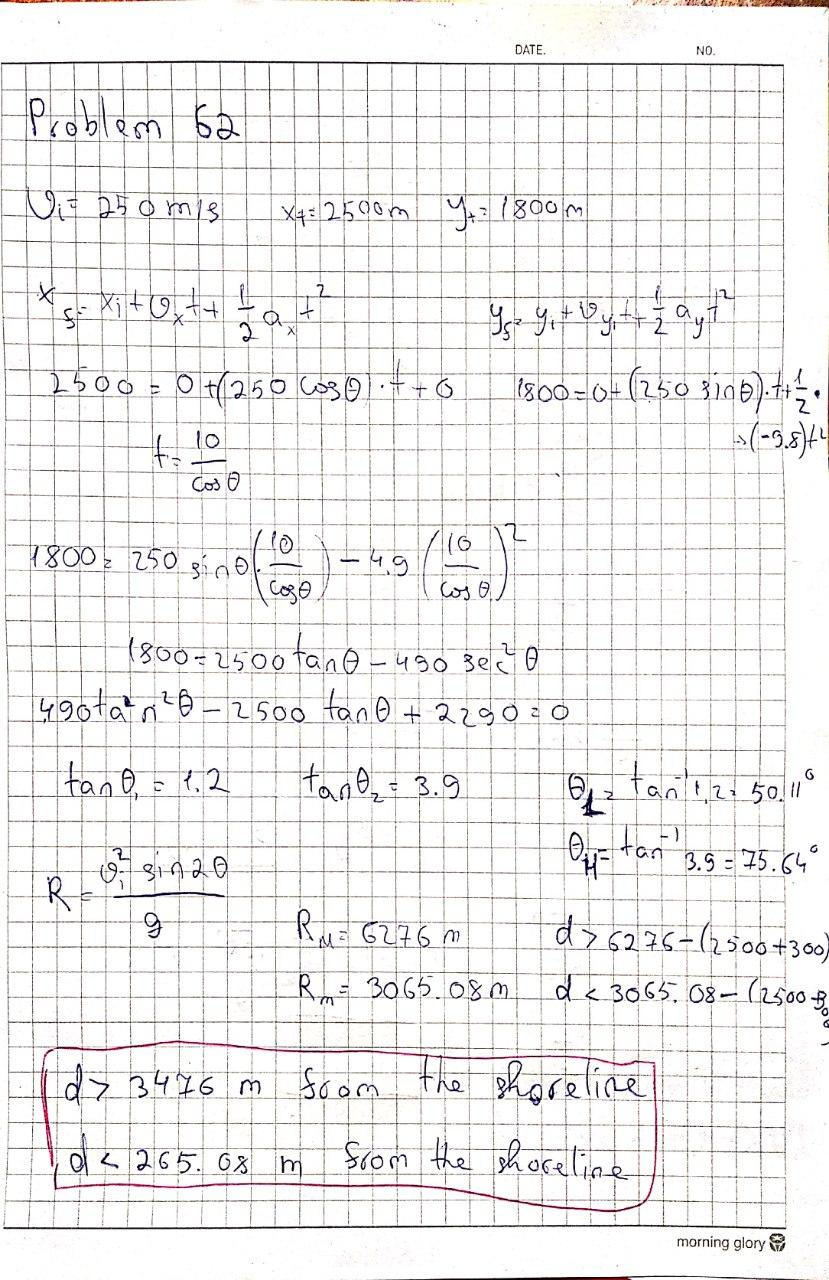 DATE. NO.
Problem 62
v_i = 250 m/s x_f = 2500 m y_f = 1800 m
x_f = x_i + v_x t + 1/2 a_x t^2 y_f = y_i + v_{y_i} t + 1/2 a_y t^2
2500 = 0 + (250 cosθ) · t + 0 1800 = 0 + (250 sinθ) · t + 1/2 ·
→ (-9.8) t^2
t = 10/cosθ
1800 = 250 sinθ · (10/cosθ) - 4.9 (10/cosθ)^2
1800 = 2500 tanθ - 490 sec^2 θ
490 tan^2 θ - 2500 tanθ + 2290 = 0
tanθ_1 = 1.2 tanθ_2 = 3.9 θ_L = tan^-1 1.2 = 50.11°
θ_H = tan^-1 3.9 = 75.64°
R = v_i^2 sin2θ / g
R_M = 6276 m d > 6276 - (2500 + 300)
R_m = 3065.08 m d < 3065.08 - (2500 + 300)
d > 3476 m from the shoreline
d < 265.08 m from the shoreline
morning glory